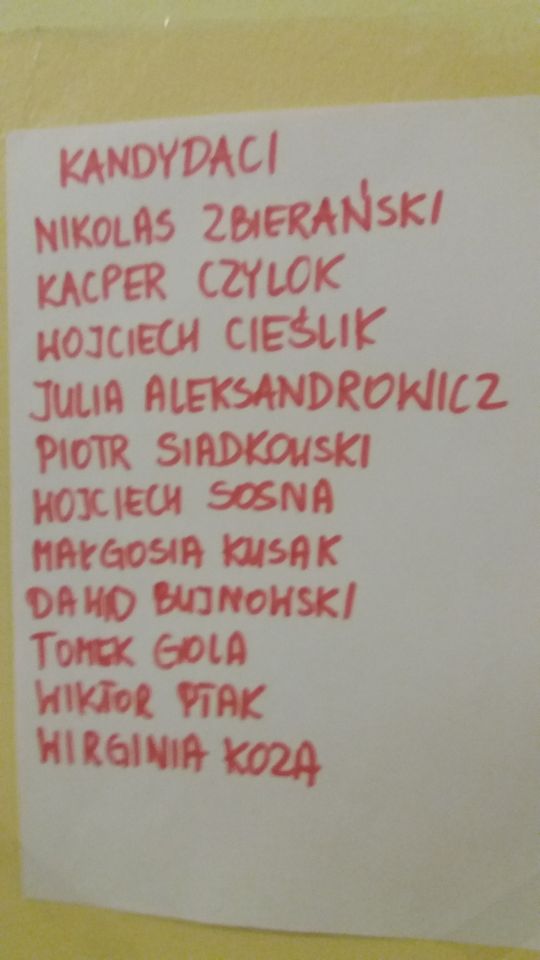 KANDYDACI
NIKOLAS ZBIERAŃSKI
KACPER CZYLOK
WOJCIECH CIEŚLIK
JULIA ALEKSANDROWICZ
PIOTR SIADKOWSKI
WOJCIECH SOSNA
MAŁGOSIA KUSAK
DAWID BUJNOWSKI
TOMEK GOLA
WIKTOR PTAK
WIRGINIA KOZA